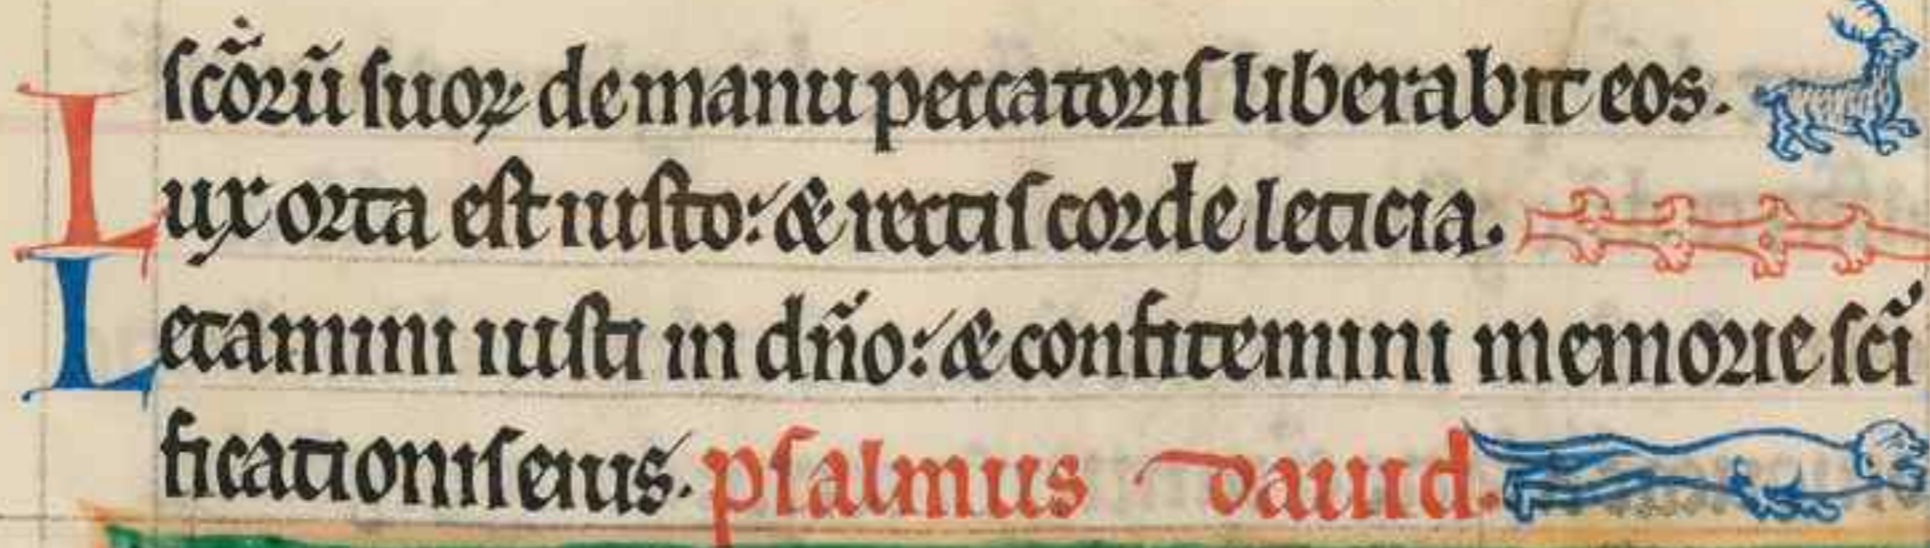 sc̃orũ suoꝝ de manu peccatoris liberabit eos.
Lux orta est iusto: & rectis corde leticia.
Letamini iusti in dño: & confitemini memorie sc̃i
ficationis eius. psalmus dauid.